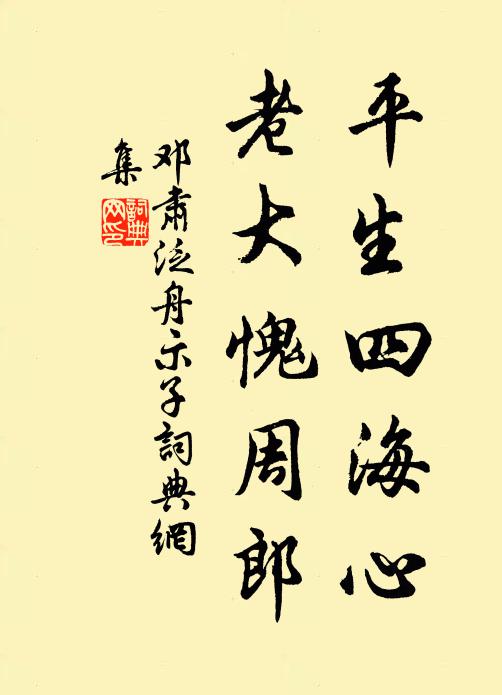 平生四海心
老大愧周郎
邓肃泛舟示子詞典網
集
詞典
网印